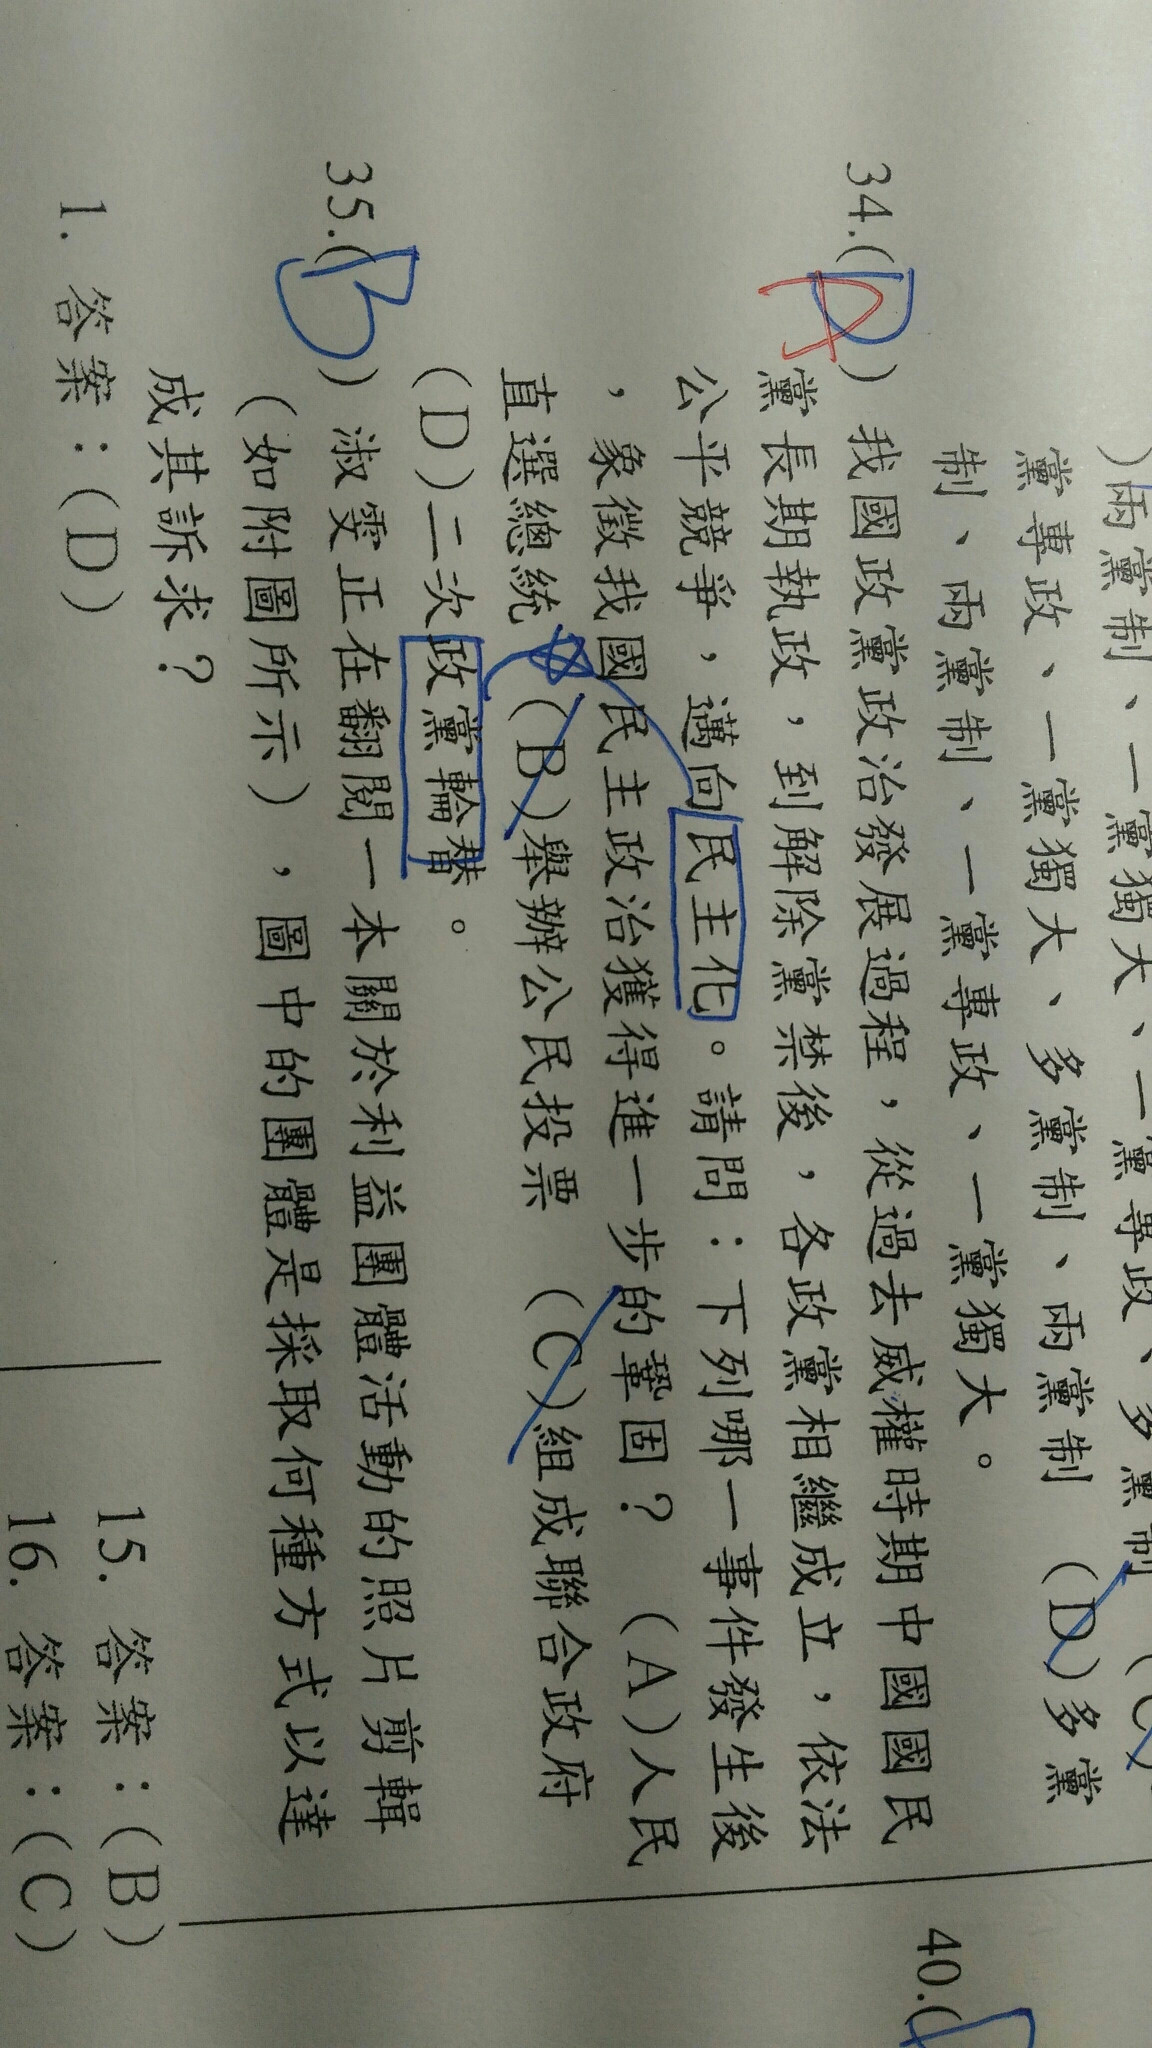 )兩黨制、一黨獨大、一黨專政、多黨制
黨專政、一黨獨大、多黨制、兩黨制 (D)多黨
制、兩黨制、一黨專政、一黨獨大。
34.(D A)我國政黨政治發展過程,從過去威權時期中國國民
黨長期執政,到解除黨禁後,各政黨相繼成立,依法
公平競爭,邁向民主化。請問:下列哪一事件發生後
,象徵我國民主政治獲得進一步的鞏固? (A)人民
直選總統 (B)舉辦公民投票 (C)組成聯合政府
(D)二次政黨輪替。
35.(B)淑雯正在翻閱一本關於利益團體活動的照片剪輯
(如附圖所示),圖中的團體是採取何種方式以達
成其訴求?
1. 答案:(D)
15. 答案:(B)
16. 答案:(C)
40.(